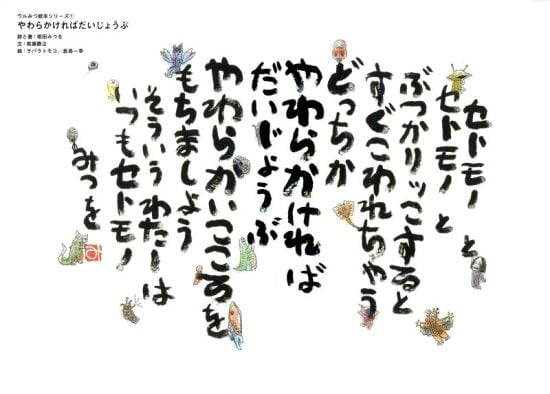 ウルみつ絵本シリーズ①
やわらかければだいじょうぶ
詩と書:相田みつを
セトモノと
セトモノと
ぶつかりッこすると
すぐこわれちゃう
どっちか
やわらかければ
だいじょうぶ
やわらかいこころを
もちましょう
そういうわたしは
いつもセトモノ
みつを